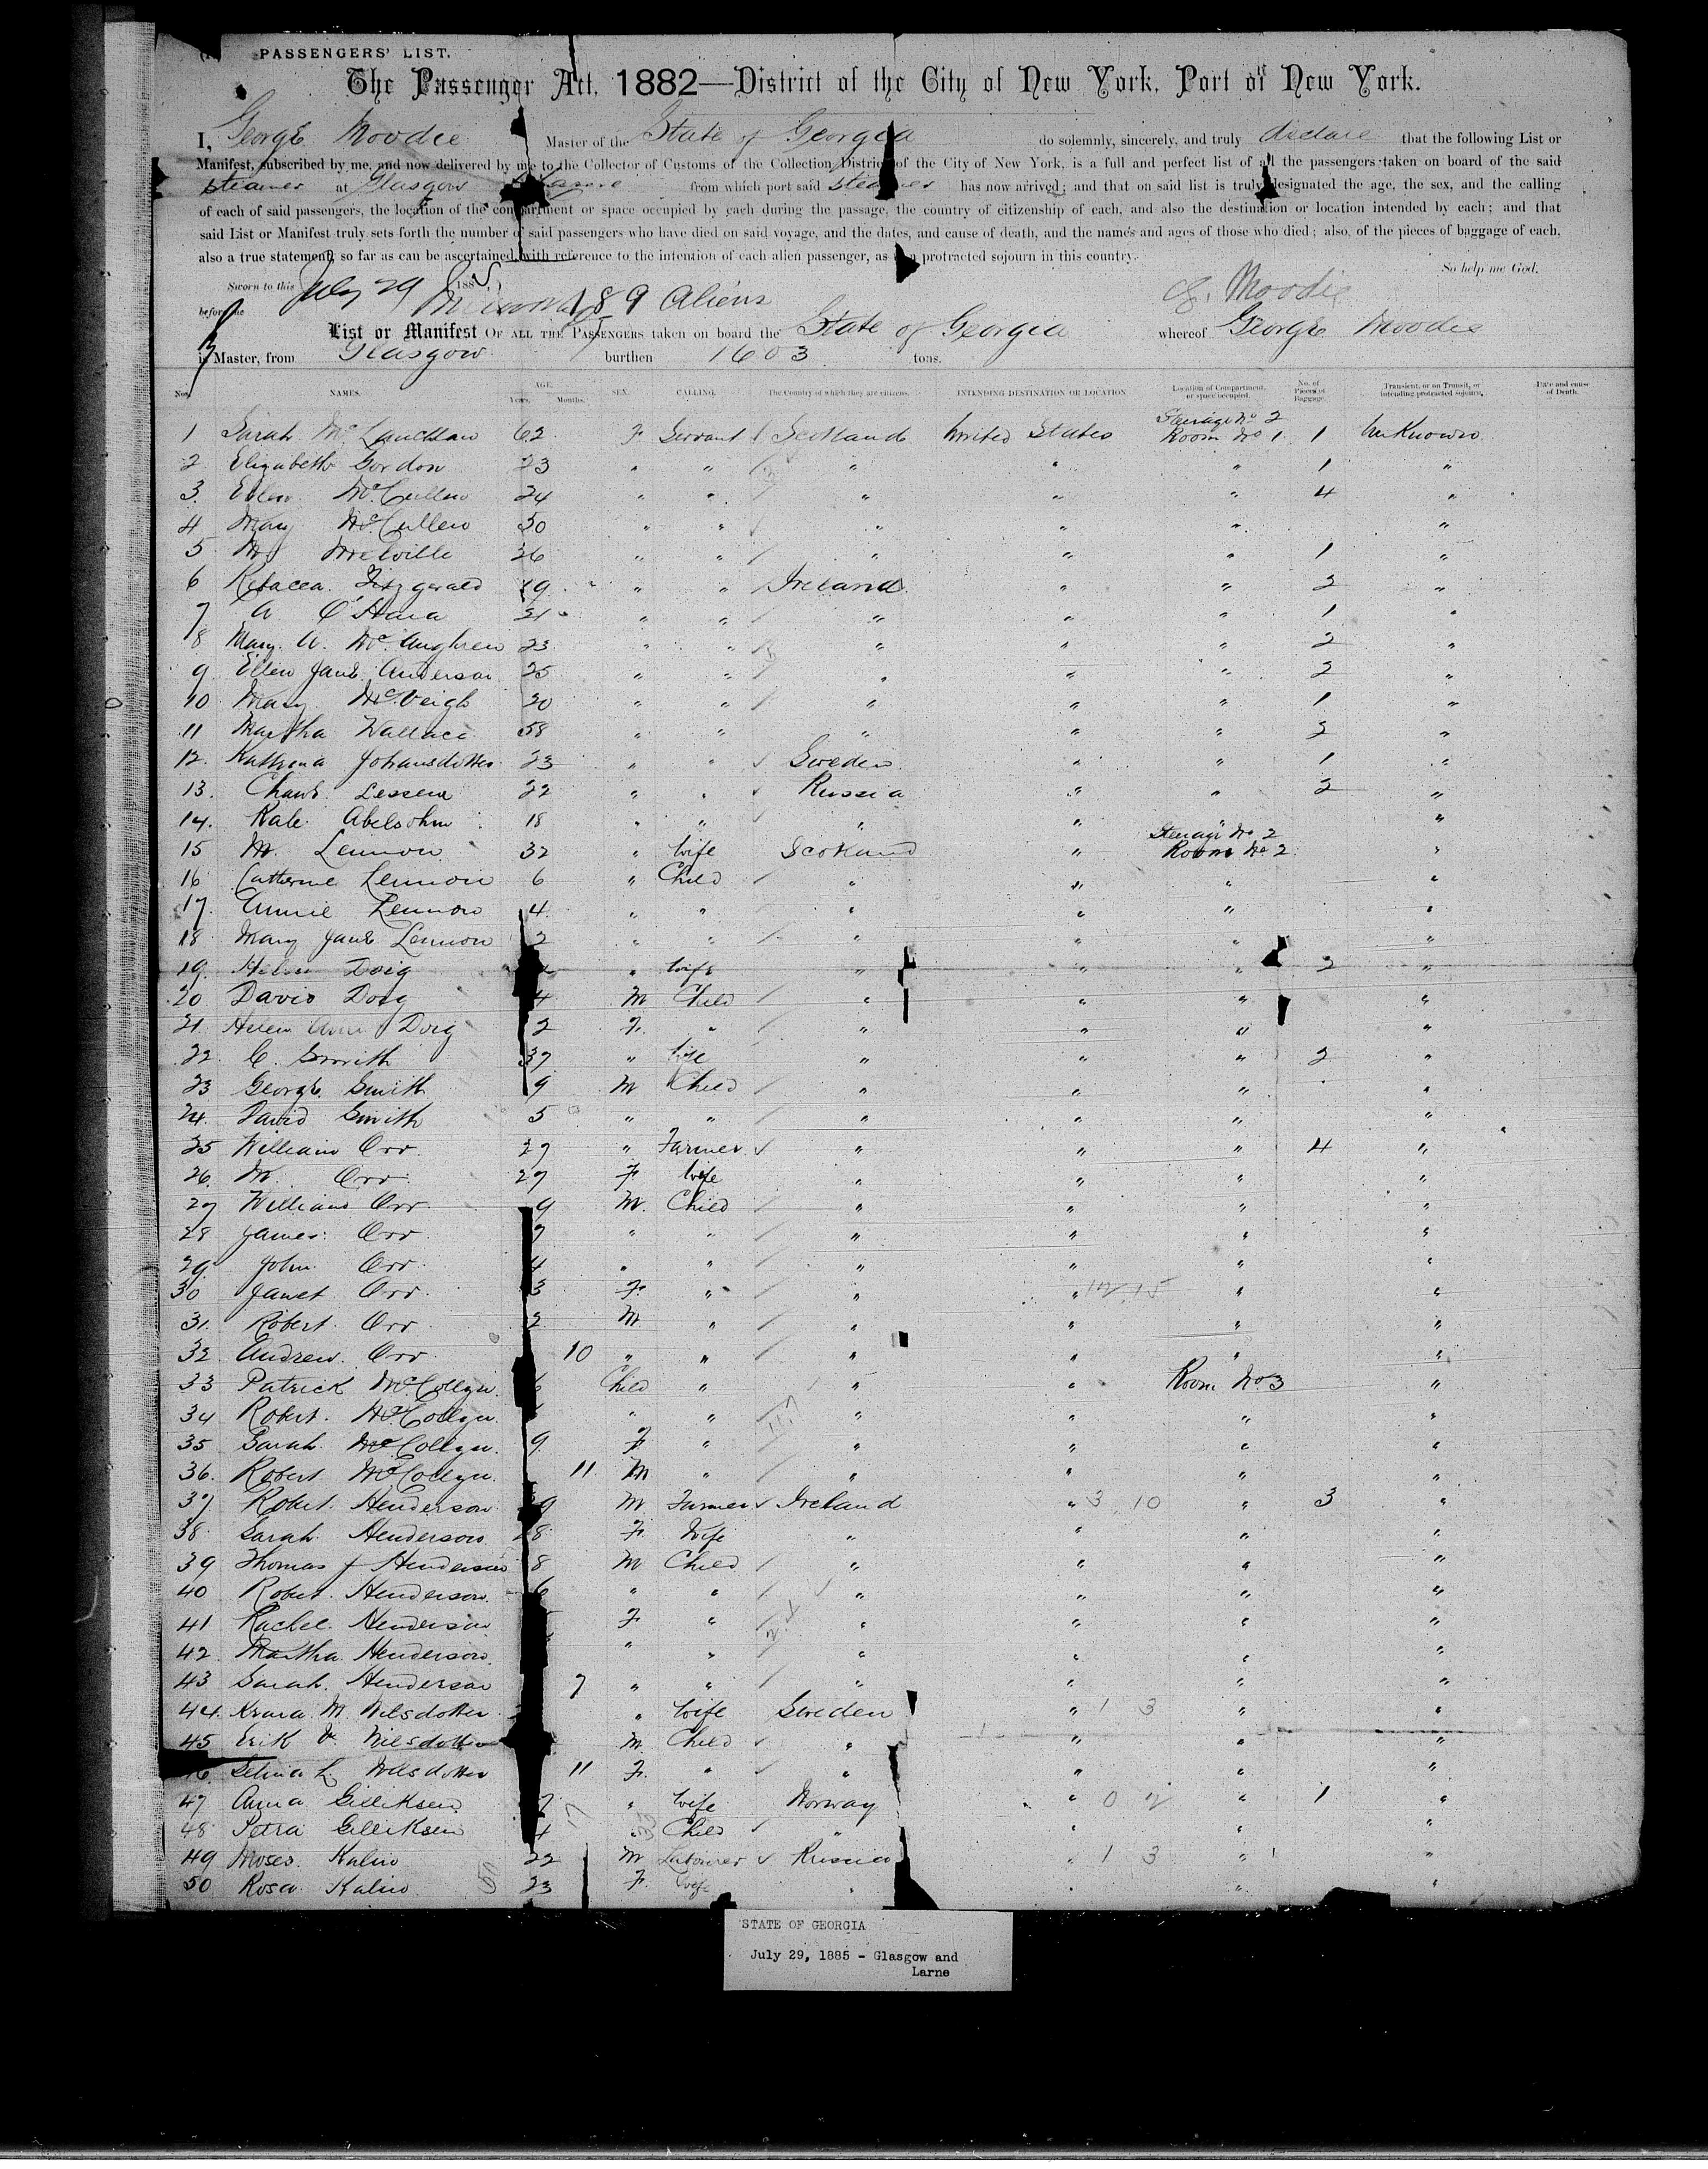 PASSENGERS' LIST.
The Passenger Act, 1882—District of the City of New York, Port of New York.
I, George Moodie Master of the State of Georgia do solemnly, sincerely, and truly declare that the following List or
Manifest, subscribed by me, and now delivered by me to the Collector of Customs of the Collection District of the City of New York, is a full and perfect list of all the passengers taken on board of the said
steamer at Glasgow Larne from which port said steamer has now arrived; and that on said list is truly designated the age, the sex, and the calling
of each of said passengers, the location of the compartment or space occupied by each during the passage, the country of citizenship of each, and also the destination or location intended by each; and that
said List or Manifest truly sets forth the number of said passengers who have died on said voyage, and the dates, and cause of death, and the names and ages of those who died; also, of the pieces of baggage of each,
also a true statement, so far as can be ascertained, with reference to the intention of each alien passenger, as to a protracted sojourn in this country.
So help me God.
Sworn to this July 29 1885
before me 189 Aliens G. Moodie
List or Manifest OF ALL THE PASSENGERS taken on board the State of Georgia whereof George Moodie
is Master, from Glasgow burthen 1603 tons.
Nos. NAMES. AGE. Years. Months. SEX. CALLING. The Country of which they are citizens. INTENDING DESTINATION OR LOCATION Location of Compartment, or space occupied. No. of Pieces of Baggage. Transient, or on Transit, or intending protracted sojourn. Date and cause of Death.
1 Sarah McLauchlan 62 F Servant Scotland United States Steerage No 2 Room No 1 1 Unknown
2 Elizabeth Gordon 23 " " " " " 1 "
3 Ellen McCullen 24 " " " " " 4 "
4 Mary McCullen 30 " " " " " "
5 M Melville 26 " " " " " 1 "
6 Rebacca Fitzgerald 19 " " Ireland " " 2 "
7 A O'Hara 21 " " " " " 1 "
8 Mary A. McAughren 23 " " " " " 2 "
9 Ellen Jane Anderson 25 " " " " " 2 "
10 Mary McVeigh 20 " " " " " 1 "
11 Martha Wallace 58 " " " " " 2 "
12 Kathrina Johansdotter 23 " " Sweden " " 1 "
13 22 " " Russia " " 2 "
14 Kale Abelsohn 18 " " " " " "
15 M. Lennon 32 " Wife Scotland " Steerage No 2 Room No 2 "
16 Catherine Lennon 6 " Child " " " "
17 Annie Lennon 4 " " " " " "
18 Mary Jane Lennon 2 " " " " " "
19 Helen Doig " Wife " " " 2 "
20 David Doig 4 M Child " " " "
21 Helen Ann Doig 2 F " " " " "
22 C. Smith 37 " Wife " " " 2 "
23 George Smith 9 M Child " " " "
24 David Smith 5 " " " " " "
25 William Orr 27 " Farmer " " " 4 "
26 M. Orr 27 F Wife " " " "
27 William Orr 9 M Child " " " "
28 James Orr 7 " " " " " "
29 John Orr 4 " " " " " "
30 Janet Orr 3 F " " " 12 15 " "
31 Robert Orr 2 M " " " " "
32 Andrew Orr 10 " " " " " "
33 Patrick McCollgin Child " " " Room No 3 "
34 Robert McCollgin " " " " " "
35 Sarah McCollgin 9 F " " " " "
36 Robert McCollgin 11 M " " " " "
37 Robert Henderson 9 M Farmer Ireland " 3 10 " 3 "
38 Sarah Henderson 28 F Wife " " " "
39 Thomas J Henderson 8 M Child " " " "
40 Robert Henderson 6 " " " " " "
41 Rachel Henderson F " " " " "
42 Martha Henderson " " " " " "
43 Sarah Henderson 7 " " " " " "
44 M Nilsdotter " Wife Sweden " 1 3 " "
45 Erik Nilsdotter M Child " " " "
46 Selma L Nilsdotter 11 F " " " " "
47 Anna Gilliksen 7 " Wife Norway " 0 2 " 1 "
48 Petra Gilliksen 4 " Child " " " "
49 Moses Kalin 22 M Labourer Russia " 1 3 " 1 "
50 Rosa Kalin 23 F Wife " " " "
STATE OF GEORGIA
July 29, 1885 - Glasgow and
Larne